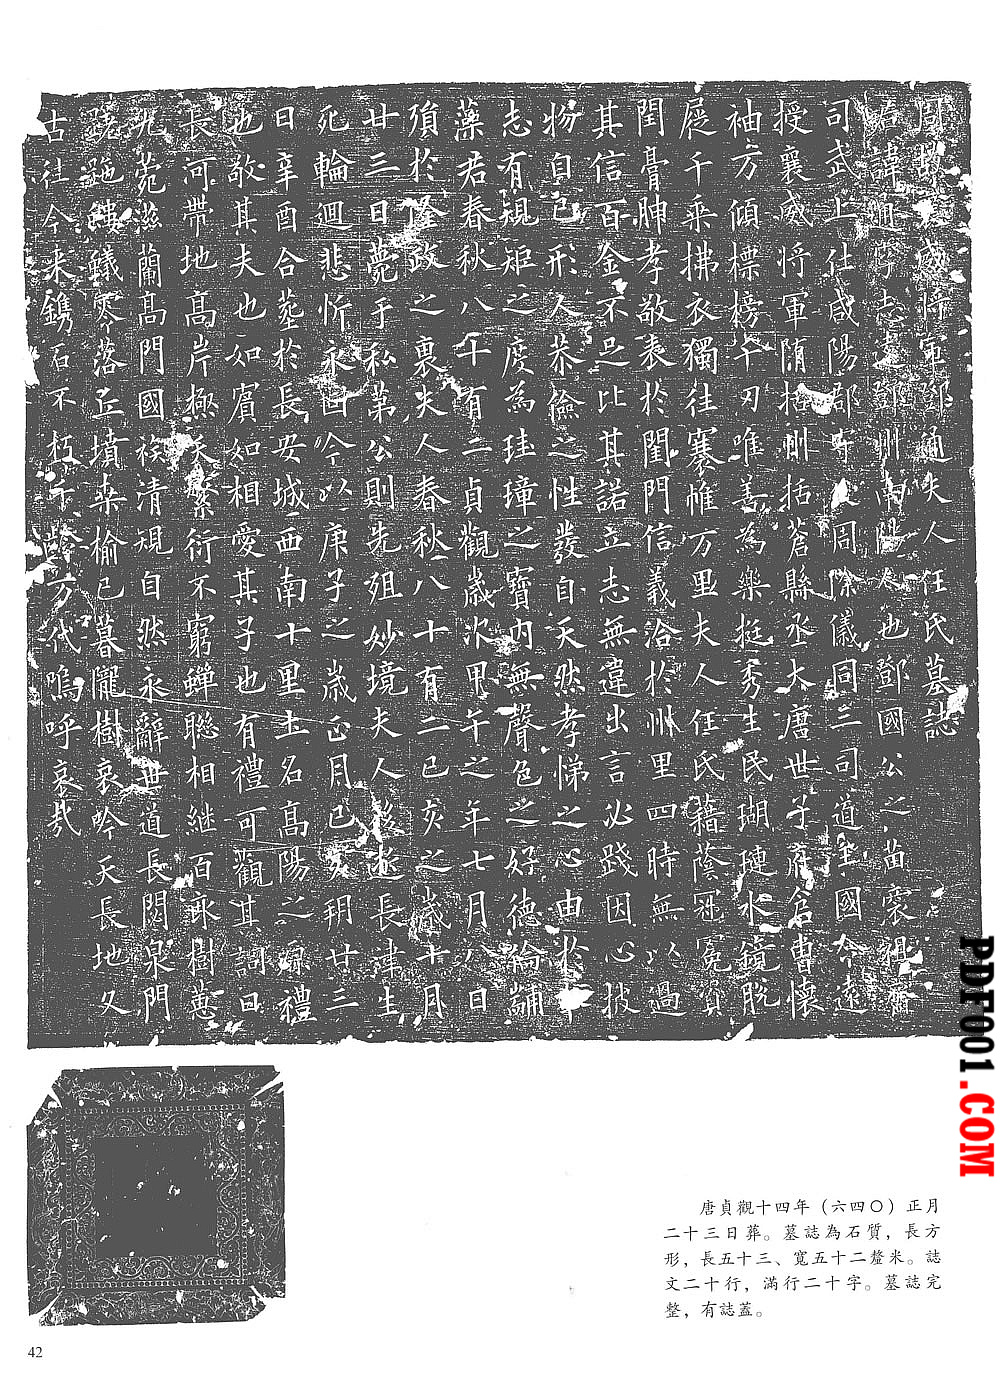 周故襄威將軍鄧通夫人任氏墓誌
諱通字志達鄧州南陽人也鄧國公之苗裔祖
司武上仕咸陽郡守周除儀同三司道至國令遠
授襄威將軍隋括州括蒼縣丞大唐世子府倉曹懷
袖方傾標榜千刃唯善為樂挺秀生民瑚璉水鏡脫
屣千乘拂衣獨往褰帷万里夫人任氏藉蔭冠冕質
閏膏腴孝敬表於閨門信義洽於州里四時無以過
其信百金不足比其諾立志無違出言必踐因心披
物自己形人恭儉之性發自天然孝悌之心由於
志有規矩之度為珪璋之寶內無聲色之好德綸黼
藻君春秋八十有二貞觀歲次甲午之年七月八日
殞於隆政之裏夫人春秋八十有二已亥之歲十月
廿三日薨于私第公則先殂妙境夫人後逝長津生
死輪迴悲忻永固今以庚子之歲正月己亥朔廿三
日辛酉合葬於長安城西南十里土名高陽之原禮
也敬其夫也如賓如相愛其子也有禮可觀其詞曰
長河帶地高岸極天繁衍不窮蟬聯相継百畝樹蕙
九菀滋蘭高門國族清規自然永辭世道長閟泉門
逶迤螻蟻零落丘墳桒榆已暮隴樹哀吟天長地久
古往今来鐫石不朽千齡万代嗚呼哀哉
唐貞觀十四年（六四〇）正月
二十三日葬。墓誌為石質，長方
形，長五十三、寬五十二釐米。誌
文二十行，滿行二十字。墓誌完
整，有誌蓋。
42
PDF001.COM